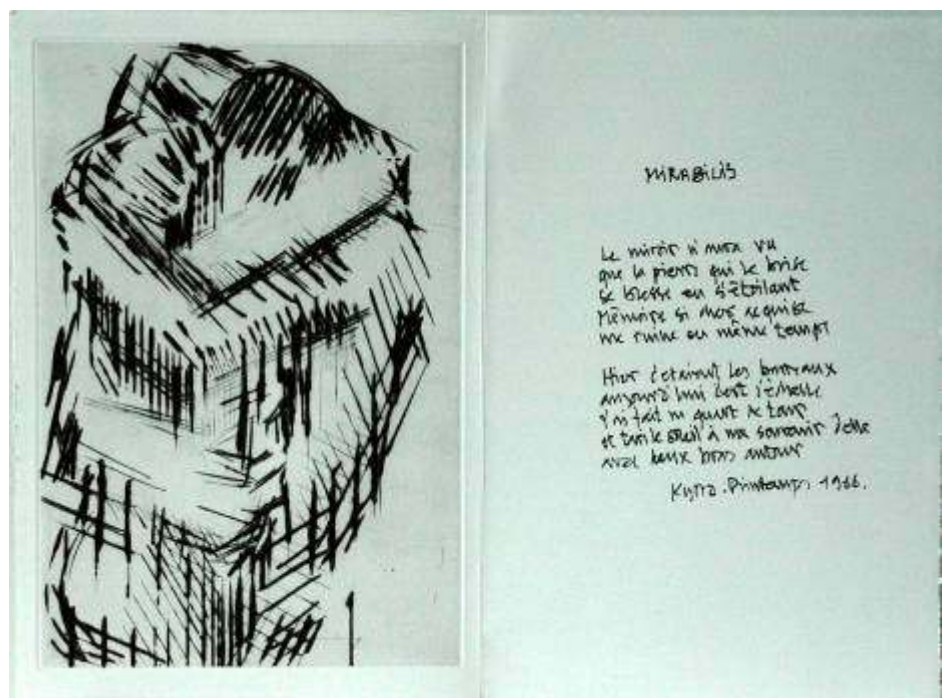 MIRABILIS
Le miroir n'aura vu
que la pierre qui le brise
se blesse en s'étoilant
Mémoire si requise
me ruine en même temps
Hier c'étaient les barreaux
aujourd'hui c'est l'échelle
j'ai fait un quart de tour
et soleil à me souvenir d'elle
avec bras autour
Printemps 1966.